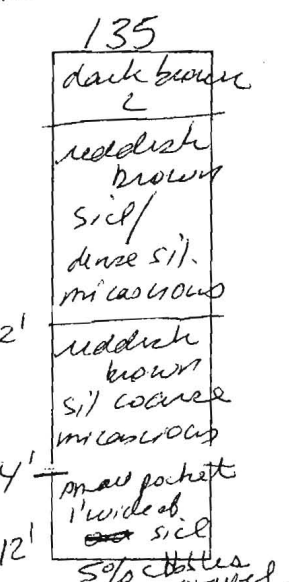 135
dark brown
L
reddish
brown
sicl/
dense sil.
micascious
2'
reddish
brown
sil coarse
micascious
4'
small pocket
1' wide of
sicl
12'
50% cobbles